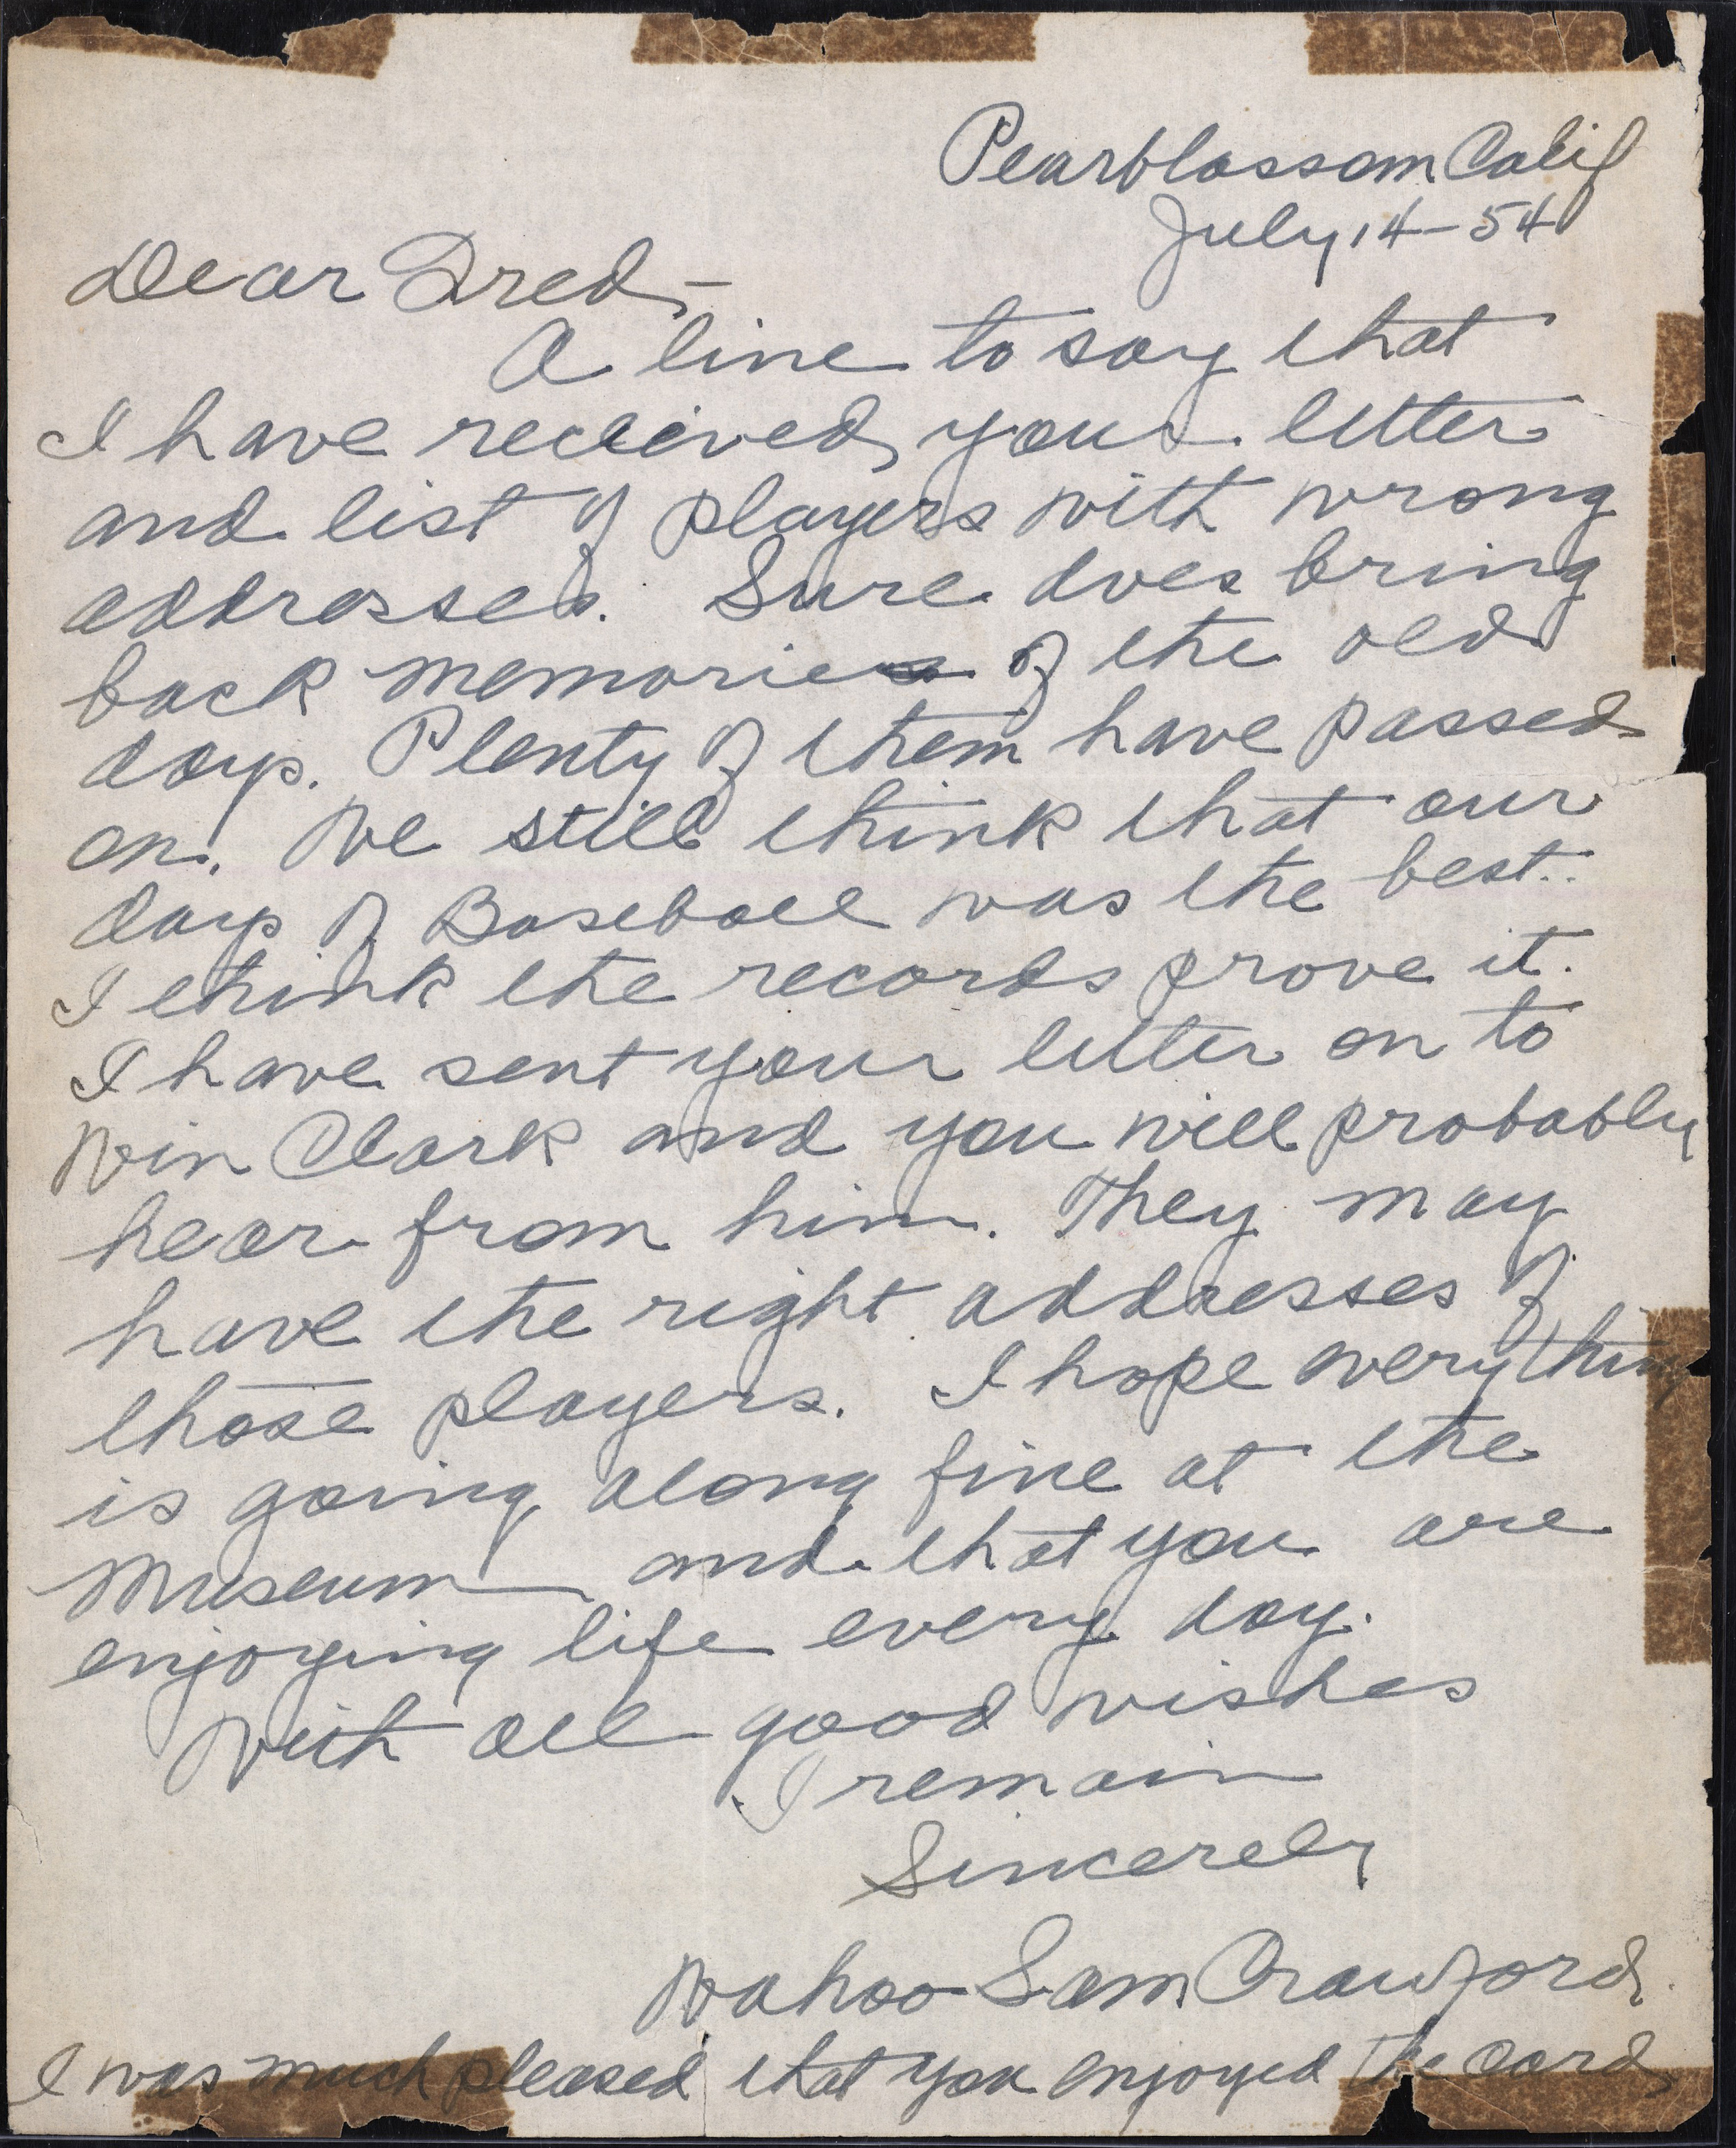 Pearblossom Calif
July 14 - 54
Dear Fred, -
A line to say that
I have recieved your letter
and list of players with wrong
addresses. Sure does bring
back memories of the old
days. Plenty of them have passed
on. We still think that our
days of Baseball was the best..
I think the records prove it.
I have sent your letter on to
Win Clark and you will probably
hear from him. They may
have the right addresses of
those players. I hope everything
is going along fine at the
Museum and that you are
enjoying life every day.
With all good wishes
I remain
Sincerely
Wahoo Sam Crawford
I was much pleased that you enjoyed the card